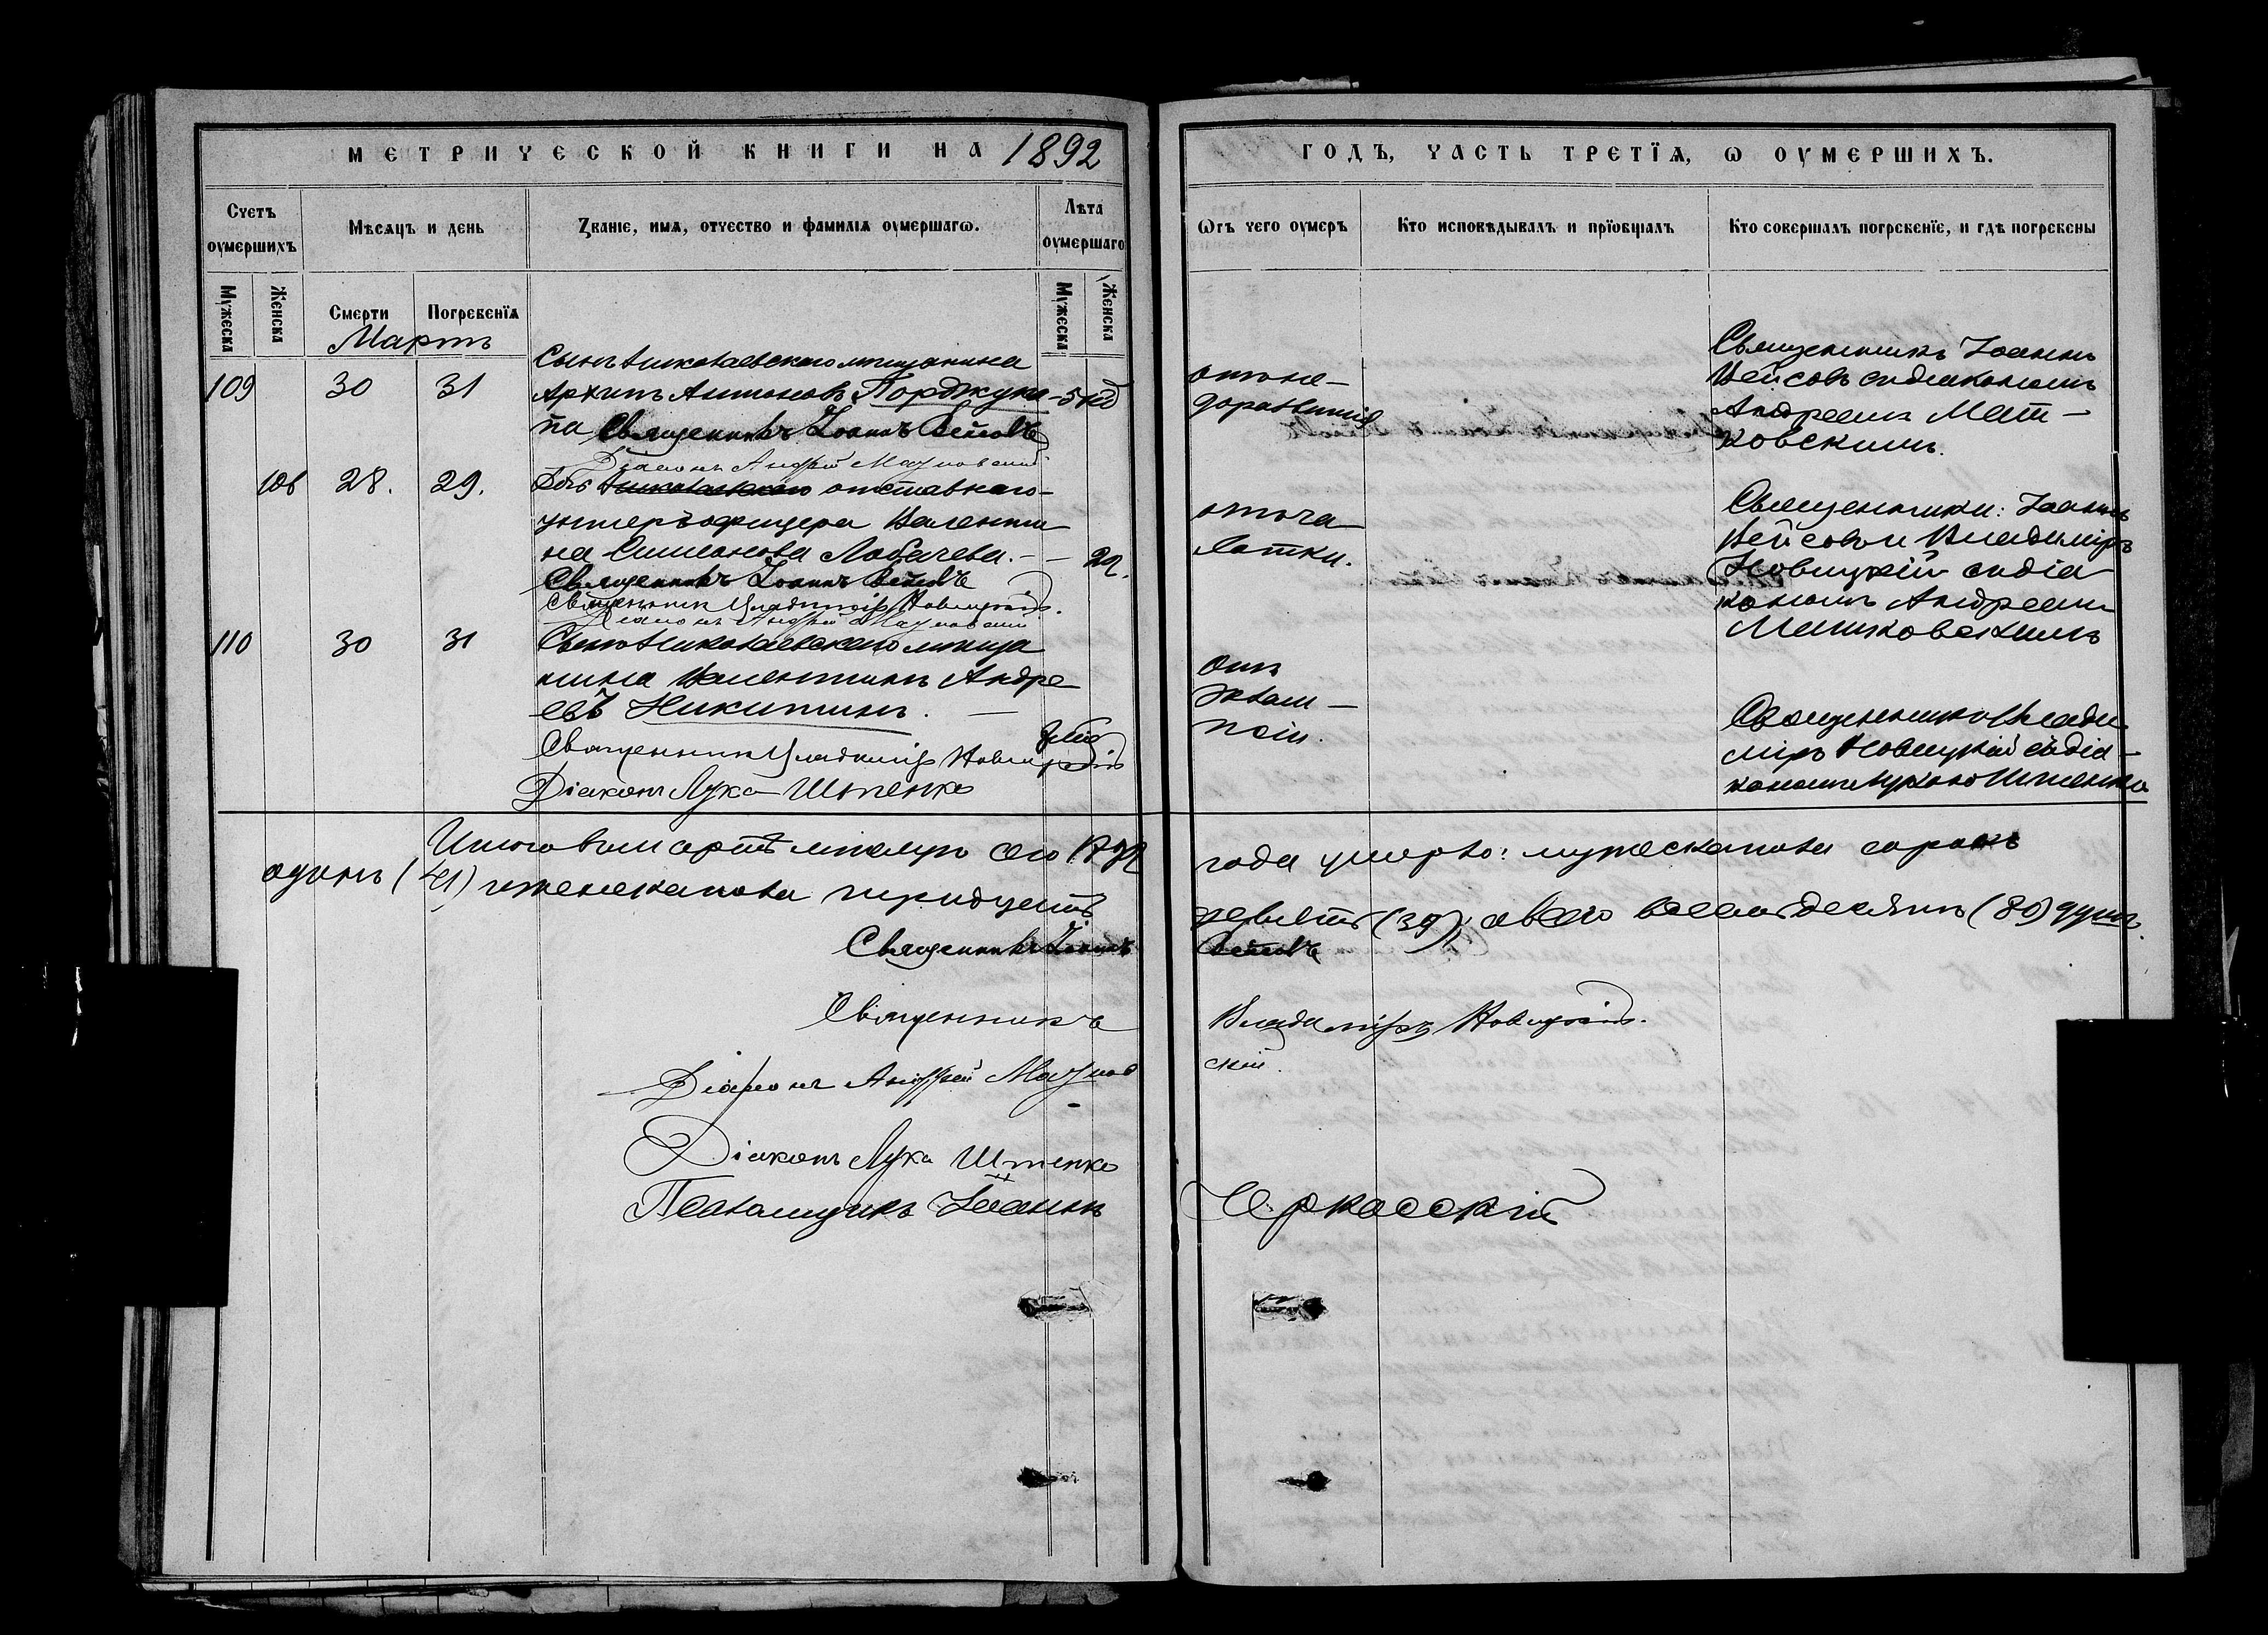 МЕТРИЧЕСКОЙ КНИГИ НА 1892
ГОДЪ, ЧАСТЬ ТРЕТІЯ, Ѡ ОУМЕРШИХЪ.
Счетъ оумершихъ
Мѣсяцъ и день
Званіе, имя, отчество и фамилія оумершагѡ.
Лѣта оумершаго
Ѿъ чего оумеръ
Кто исповѣдывалъ и пріобщалъ
Кто совершалъ погребеніе, и гдѣ погребены
Мужеска
Женска
Смерти
Погребенія
Мужеска
Женска
Мартъ
109 30 31
Сынъ Николаевскаго мѣщанина
Архипъ Антоновъ Порджуко-
па
5
Священникъ Іоаннъ Вейсовъ
Діаконъ Андрей
от не-
доразвитія
Священникъ Іоаннъ
Вейсовъ съ діакономъ
Андреемъ Мат-
ковскимъ.
106 28. 29.
Дочь Николаевскаго отставнаго
унтеръ офицера Валенти
на Симонова Лобачева. —
2
Священникъ Іоаннъ Вейсовъ
Священникъ Владиміръ Новицкій.
Діаконъ Андрей
от ча-
хотки.
Священники: Іоаннъ
Вейсовъ и Владиміръ
Новицкій съ діа
кономъ Андреемъ
Матковскимъ
110 30 31
Сынъ Николаевскаго мѣща
нина Валентинъ Андре
евъ Никитинъ. —
Священникъ Владиміръ Новицкій
Діаконъ Лука Штенко
Отъ
эклам-
псіи.
Священникъ Влади
міръ Новицкій съ діа-
кономъ Лукою Штенко
Итого въ мартѣ мѣсяцѣ сего 1892 года умерло: мужеска пола сорокъ
одинъ (41) и женска пола тридцать девять (39), а всего восемьдесятъ (80) душъ.
Священникъ Іоаннъ Вейсовъ
Священникъ Владиміръ Новицкій.
Діаконъ Андрей Матков
скій.
Діаконъ Лука Штенко
Псаломщикъ Іоаннъ Черкасскій